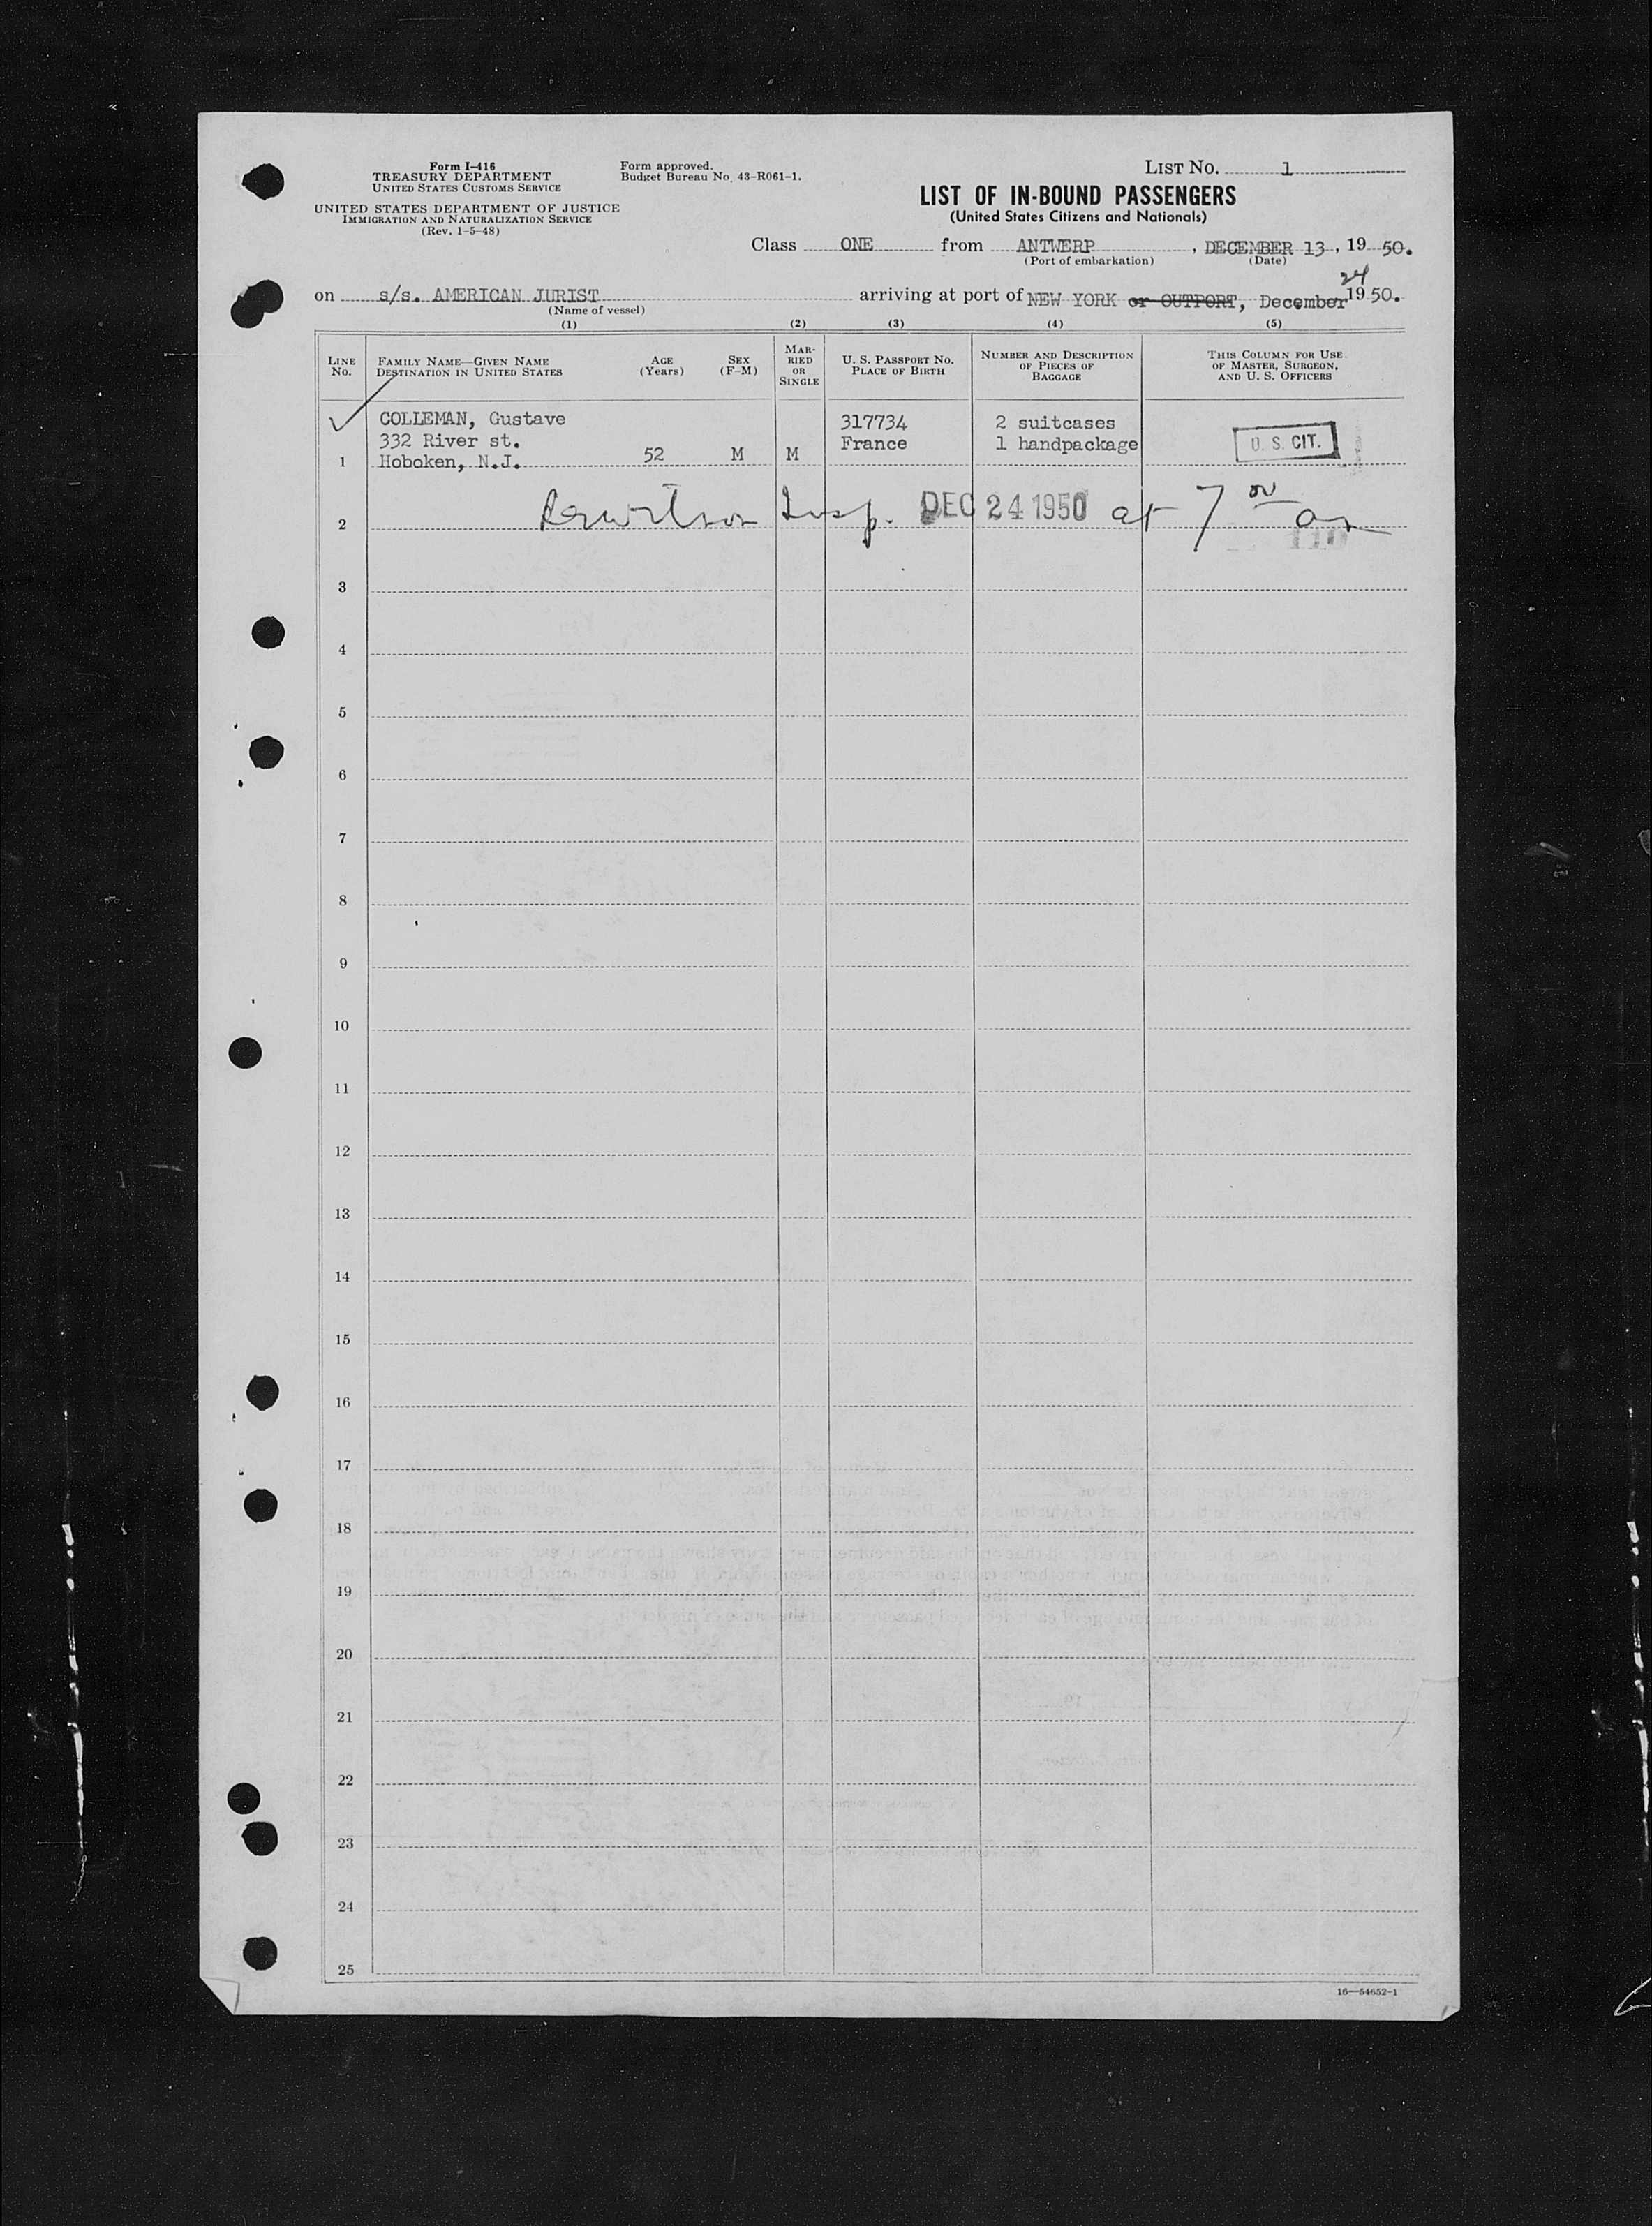 Form I-416
TREASURY DEPARTMENT
UNITED STATES CUSTOMS SERVICE
UNITED STATES DEPARTMENT OF JUSTICE
IMMIGRATION AND NATURALIZATION SERVICE
(Rev. 1-5-48)
Form approved.
Budget Bureau No. 43-R061-1.
LIST NO. 1
LIST OF IN-BOUND PASSENGERS
(United States Citizens and Nationals)
Class ONE from ANTWERP, DECEMBER 13, 19 50.
(Port of embarkation) (Date)
24
on s/s. AMERICAN JURIST arriving at port of NEW YORK or OUTPORT, December 19 50.
(Name of vessel)
(1) (2) (3) (4) (5)
LINE No. FAMILY NAME—GIVEN NAME DESTINATION IN UNITED STATES AGE (Years) SEX (F-M) MARRIED OR SINGLE U. S. PASSPORT NO. PLACE OF BIRTH NUMBER AND DESCRIPTION OF PIECES OF BAGGAGE THIS COLUMN FOR USE OF MASTER, SURGEON, AND U. S. OFFICERS
COLLEMAN, Gustave 317734 2 suitcases
332 River st. France 1 handpackage U. S. CIT.
1 Hoboken, N.J. 52 M M
2 Insp. DEC 24 1950 at 7
3
4
5
6
7
8
9
10
11
12
13
14
15
16
17
18
19
20
21
22
23
24
25
16—54652-1